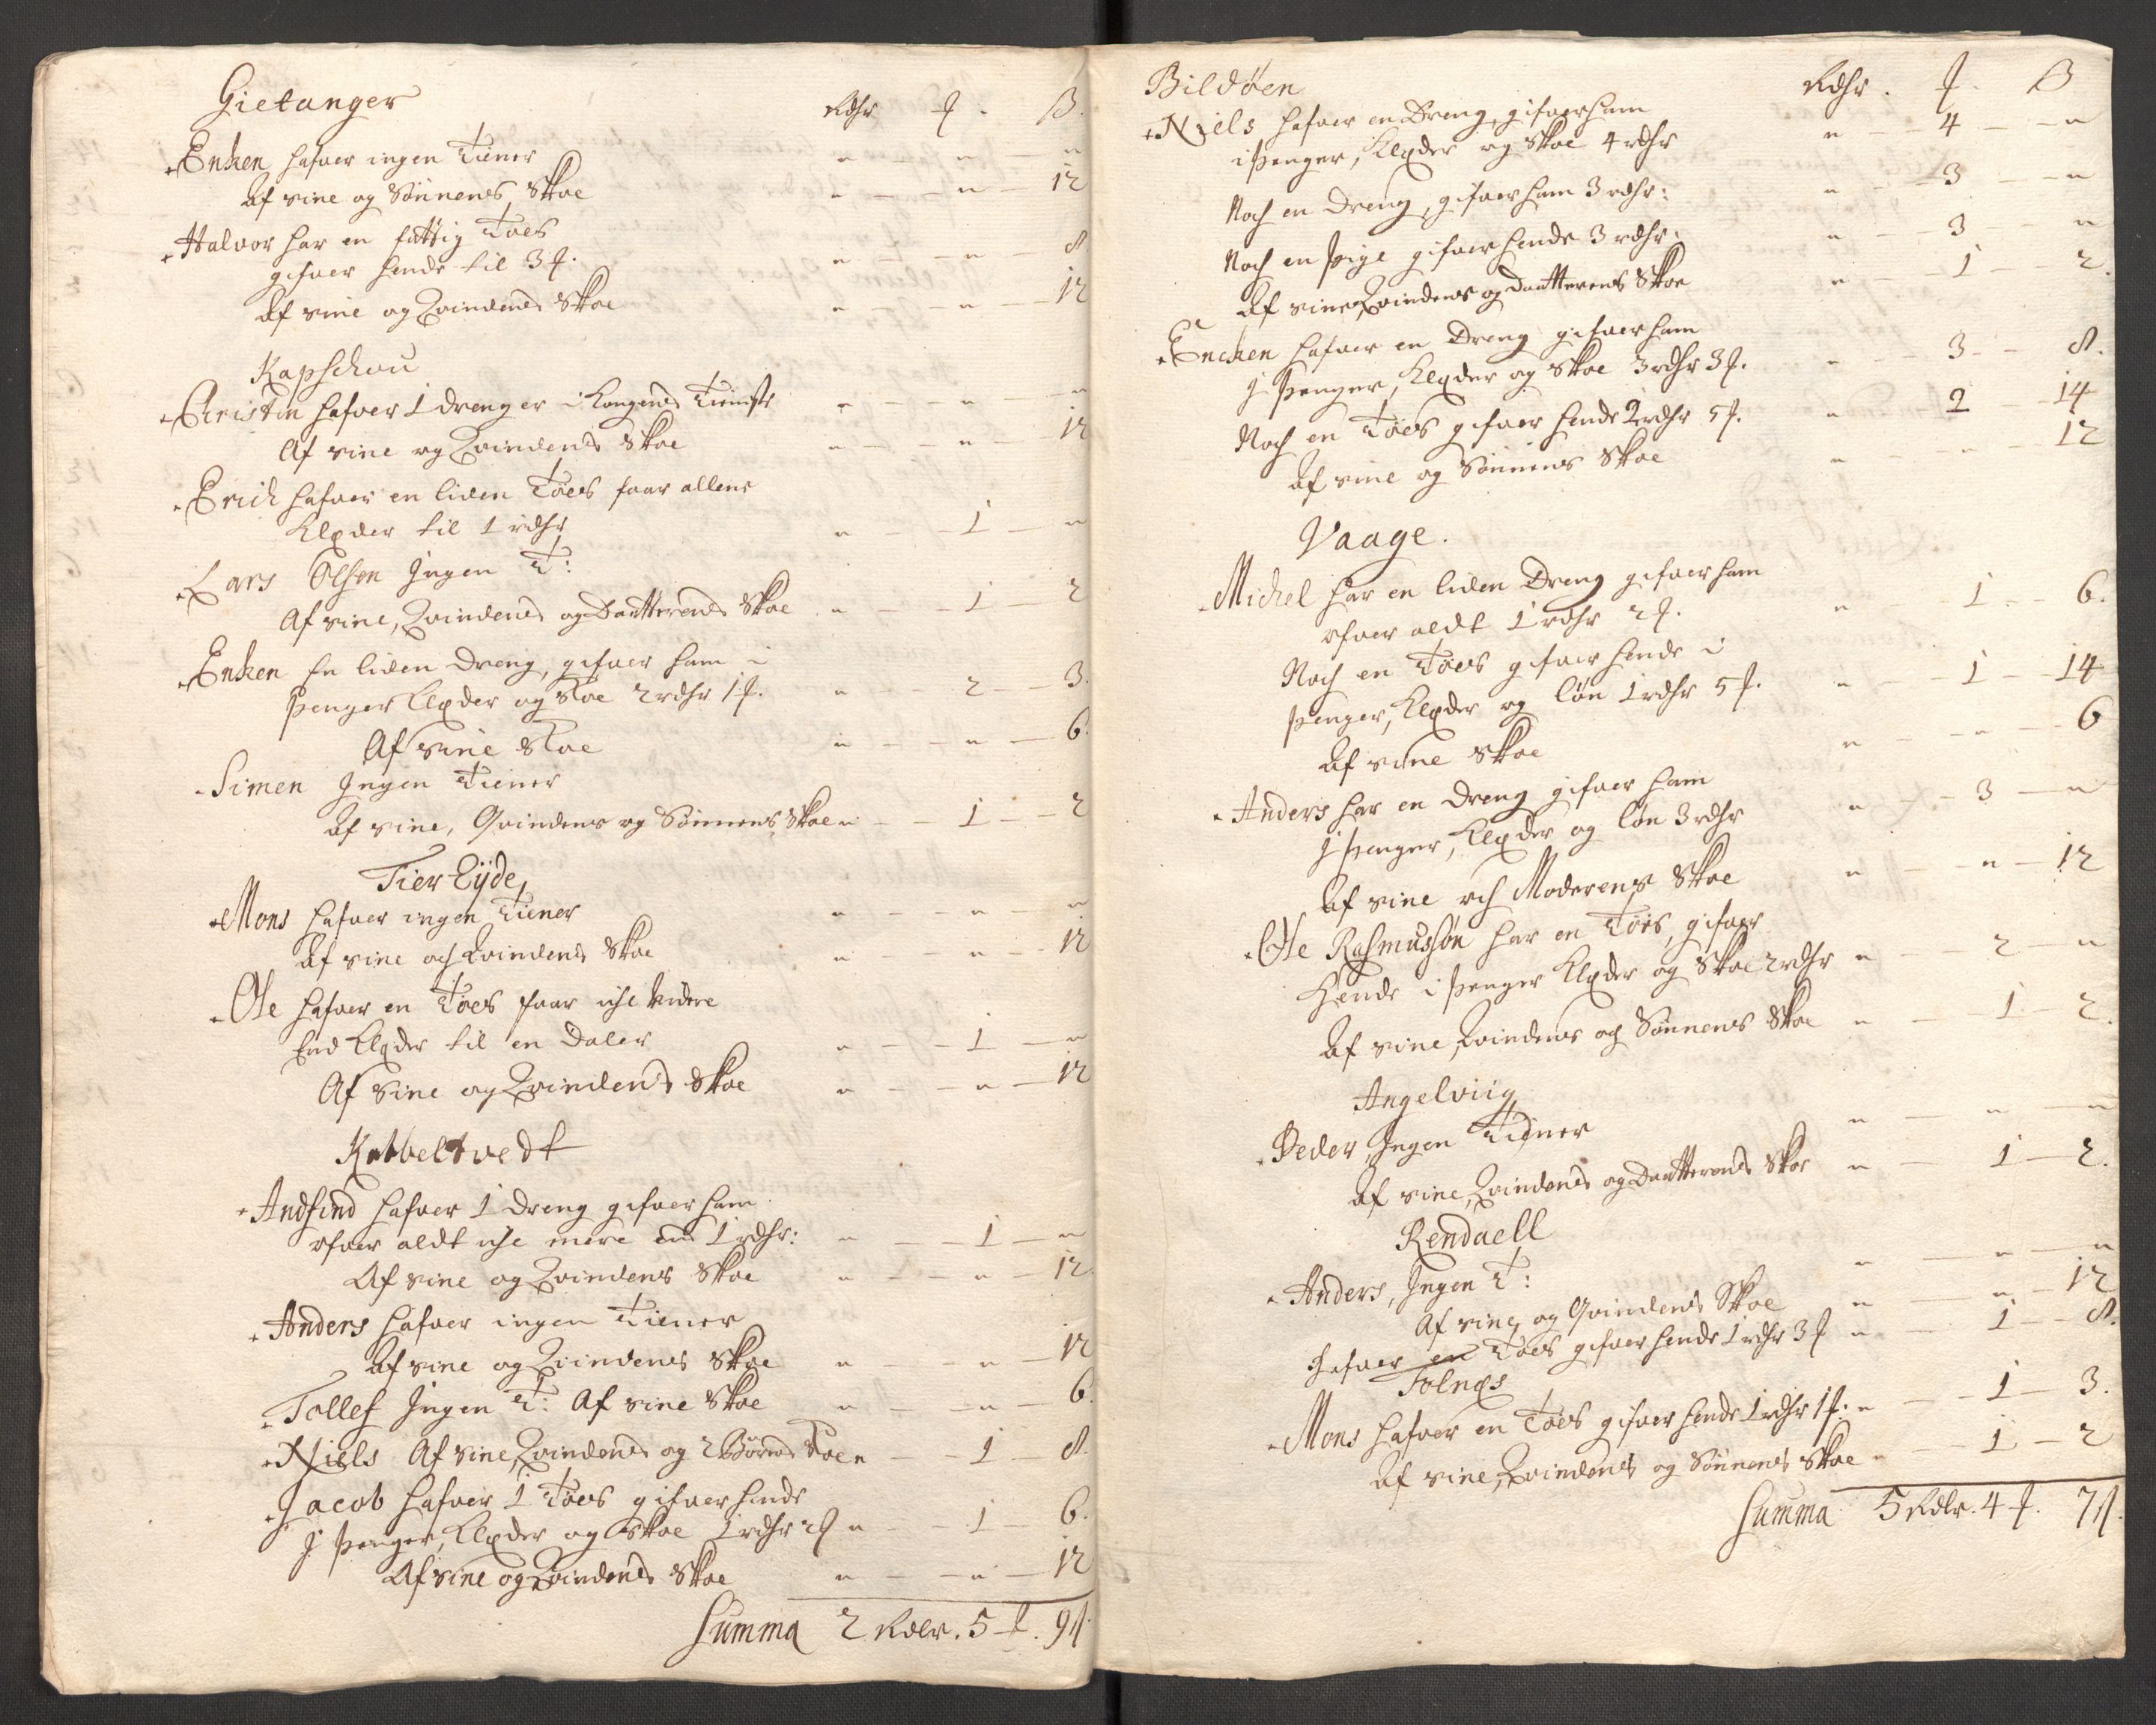 Gietanger
Rdhr ƒ. β.
Enken hafver ingen Tiener " — " — "
Af sine og Sönnens Skoe " — " — 12
Halvor har en fattig Töes
gifver hende til 3 ƒ. " — " — 8
Af sine og Qvindens Skoe " — " — 12
Kapschou
Christin hafver 1 dreng er i Kongens Tieniste " — " — "
Af sine og Qvindens Skoe " — " — 12
Erich hafver en liden Töes faar allene
Klæder til 1 rdhr " — 1 — "
Lars Olsen Ingen T:
Af sine, Qvindens og Daatterens Skoe " — 1 — 2
Enken En liden dreng, gifver ham i
penger Klæder og skoe 2 rdhr 1 ƒ. " — 2 — 3.
Af sine skoe " — " — 6.
Simen Ingen Tiener
Af sine, Qvindens og Sönnens Skoe " — 1 — 2
Tier Eyde
Mons hafver ingen Tiener " — " — "
Af sine och Qvindens Skoe " — " — 12
Ole hafver en Töes faar iche videre
End Klæder til en daler " — 1 — "
Af sine og Qvindens Skoe " — " — 12
Kobbeltvedt
Andfind hafver 1 dreng gifver ham
ofver aldt iche mere end 1 rdhr: " — 1 — "
Af sine og Qvindens Skoe " — " — 12.
Anders hafver ingen Tiener
Af sine og Qvindens Skoe " — " — 12
Tollef Ingen T: Af sine Skoe " — " — 6.
Niels Af sine, Qvindens og 2 Börns Skoe " — 1 — 8.
Jacob hafver 1 Töes gifver hende
J penger, Klæder og Skoe 1 rdhr 2 ƒ " — 1 — 6.
Af sine og Qvindens Skoe " — " — 12
Summa 2 Rdlr. 5 ƒ. 9 β.
Bildøen
Rdhr. ƒ. β
Niels hafver en Dreng, gifver ham
i penger, Klæder og Skoe 4 rdhr " — 4 — "
Noch en dreng, gifver ham 3 rdhr: " — 3 — "
Noch en pige gifver hende 3 rdhr: " — 3 — "
Af sine, Qvindens og Daatterens Skoe " — 1 — 2.
Encken hafver en Dreng gifver ham
J penger, Klæder og Skoe 3 rdhr 3 ƒ. " — 3 — 8.
Noch en Töes gifver hende 2 rdhr 5 ƒ. " — 2 — 14
Af sine og Sönnens Skoe " — " — 12
Vaage.
Michel har en liden Dreng gifver ham
ofver aldt 1 rdhr 2 ƒ. " — 1 — 6.
Noch en Töes gifver hende i
penger, Klæder og lön 1 rdhr 5 ƒ. " — 1 — 14
Af sine Skoe " — " — 6
Anders har en dreng gifver ham
J penger, Klæder og lön 3 rdhr " — 3 — "
Af sine och Moderens Skoe " — " — 12
Ole Rasmussön har en Töes, gifver
Hende i penger Klæder og Skoe 2 rdhr " — 2 — "
Af sine, Qvindens och Sönnens Skoe " — 1 — 2.
Angelviig
Peder, Ingen Tiener " — " — "
Af sine, Qvindens og Daatterens Skoe " — 1 — 2.
Rendaell
Anders, Ingen T: " — " — "
Af sine og Qvindens Skoe " — " — 12
Hafver en Töes gifver hende 1 rdhr 3 ƒ " — 1 — 8.
Folnæs
Mons hafver en Töes gifver hende 1 rdhr 1 ƒ. " — 1 — 3.
Af sine, Qvindens og Sönnens Skoe " — 1 — 2
Summa 5 Rdlr. 4 ƒ. 7 β.